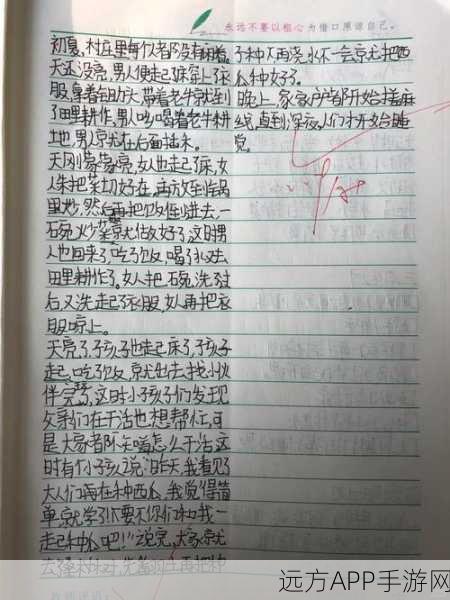 永远不要以粗心为借口原谅自己。
初夏,村庄里每个人都没有闲着。
天还没亮,男人便起了床穿上了衣
服,拿着锄头,带着老牛就到
了田里耕作,男人吆喝着老牛耕
地,男人就在后面插禾。
天刚蒙蒙亮,女人也起了床,女
人先把菜切好在,再放在锅
里炒,然后再把饭倒进去,一
碗炒菜就做好了这时男
人也回来了,吃了饭,喝了水又去
田里耕作了。女人把碗洗过
后又洗起了衣服,女人再把衣
服晾上。
天亮了,孩子也起床了,孩子
起,吃了饭,就出去找小伙
伴完了,这时小孩子们发现
父亲们在干活也想帮忙,可
是大家都不知道怎么干活这
时有个小孩说:"昨天,我看见了
大人们在种西瓜,我觉得简
单就学了!不要不你们和我一
起种瓜吧!"说完,大家就
去
子种下再浇水不一会就把西
瓜种好了。
晚上,家家户户都开始搓麻
绳,直到深夜人们才开始睡
觉。
远方APP手游网